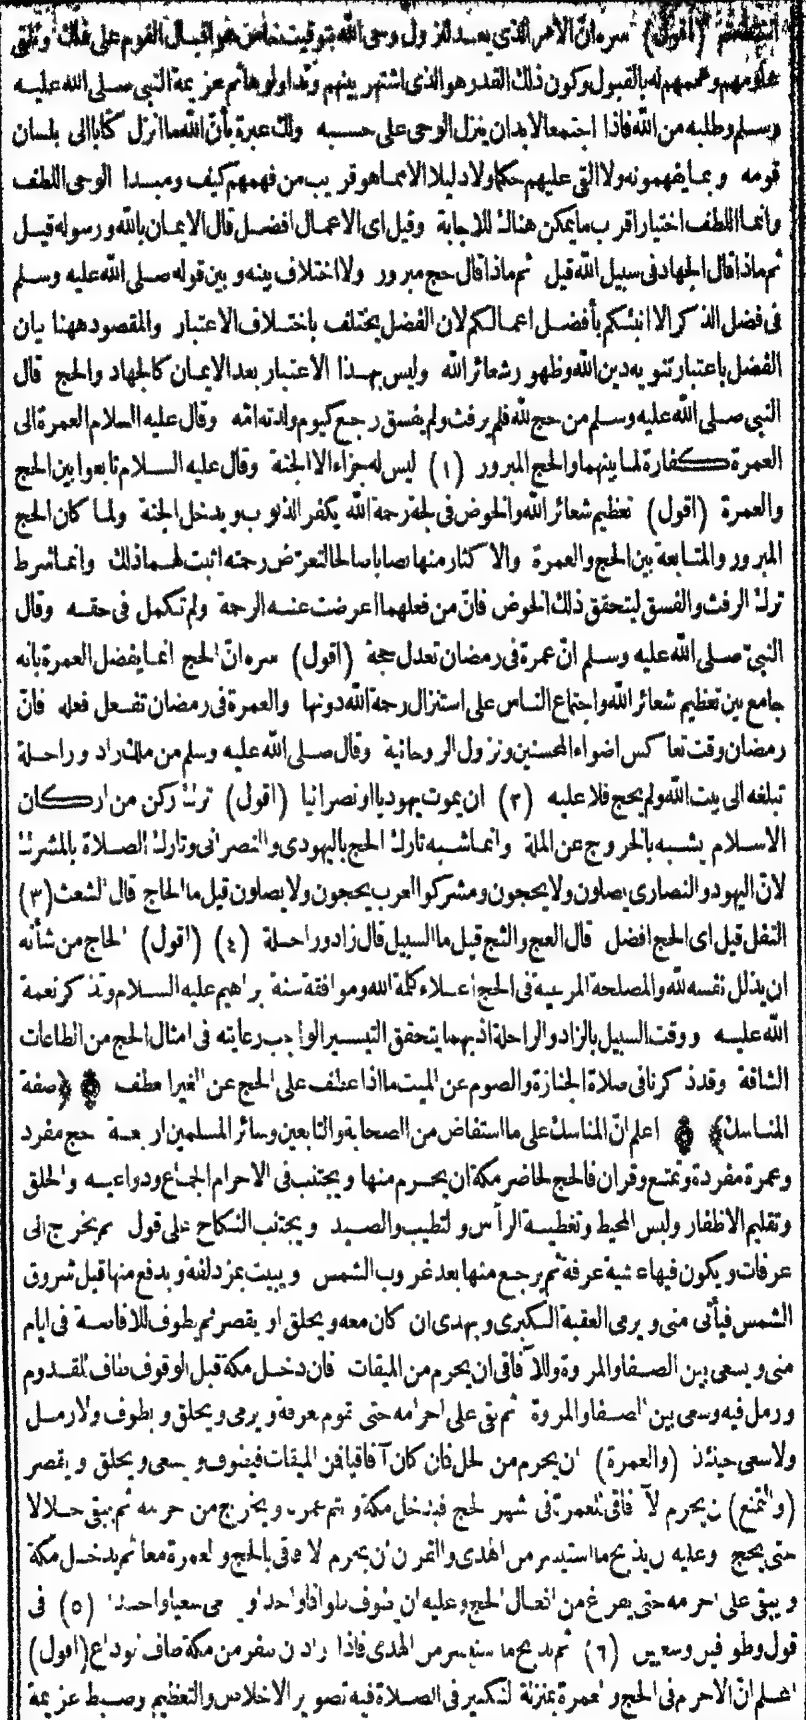 استطعتم (اقول) سره ان الامر الذى يعد لنزول وحى الله بتوقيت خاص هو اقبال القوم على ذلك وتلقى
علومهم وهممهم له بالقبول وكون ذلك القدر هو الذى اشتهر بينهم وتداولوها ثم عزيمة النبى صلى الله عليه
وسلم وطلبه من الله فاذا اجتمعا لابد ان ينزل الوحى على حسبه ولك عبرة بأن الله ما انزل كتابا الى بلسان
قومه وبما يفهمونه ولا القى عليهم حكما ولا دليلا الا مما هو قريب من فهمهم كيف ومبدا الوحى اللطف
وانما اللطف اختيار اقرب ما يمكن هناك للاجابة وقيل اى الاعمال افضل قال الايمان بالله ورسوله قيل
ثم ماذا قال الجهاد فى سبيل الله قيل ثم ماذا قال حج مبرور ولا اختلاف بينه وبين قوله صلى الله عليه وسلم
فى فضل الذكر الا انبئكم بأفضل اعمالكم لان الفضل يختلف باختلاف الاعتبار والمقصود ههنا بيان
الفضل باعتبار تنويه دين الله وظهور شعائر الله وليس بهذا الاعتبار بعد الايمان كالجهاد والحج قال
النبى صلى الله عليه وسلم من حج لله فلم يرفث ولم يفسق رجع كيوم ولدته امه وقال عليه السلام العمرة الى
العمرة كفارة لما بينهما والحج المبرور (١) ليس له جزاء الا الجنة وقال عليه السلام تابعوا بين الحج
والعمرة (اقول) تعظيم شعائر الله والخوض فى لجة رحمة الله يكفر الذنوب ويدخل الجنة ولما كان الحج
المبرور والمتابعة بين الحج والعمرة والاكثار منها نصابا صالحا لتعرّض رحمته اثبت لهما ذلك وانما شرط
ترك الرفث والفسق ليتحقق ذلك الخوض فان من فعلهما اعرضت عنه الرحمة ولم تكمل فى حقه وقال
النبىّ صلى الله عليه وسلم انّ عمرة فى رمضان تعدل حجة (اقول) سره انّ الحج انما يفضل العمرة بانه
جامع بين تعظيم شعائر الله واجتماع الناس على استنزال رحمة الله دونها والعمرة فى رمضان تفعل فعله فانّ
رمضان وقت تعاكس اضواء المحسنين ونزول الروحانية وقال صلى الله عليه وسلم من ملك زاد وراحلة
تبلغه الى بيت الله ولم يحج فلا عليه (٢) ان يموت يهوديا او نصرانيا (اقول) ترك ركن من اركان
الاسلام يشبه بالخروج عن الملة وانما شبه تارك الحج باليهودى والنصرانى وتارك الصلاة بالمشرك
لانّ اليهود والنصارى يصلون ولا يحجون ومشركو العرب يحجون ولا يصلون قيل ما الحاج قال الشعث (٣)
التفل قيل اى الحج افضل قال العج والثج قيل ما السبيل قال زاد وراحلة (٤) (اقول) الحاج من شأنه
ان يذلل نفسه لله والمصلحة المرعية فى الحج اعلاء كلمة الله وموافقة سنة ابراهيم عليه السلام وتذكر نعمة
الله عليه ووقت السبيل بالزاد والراحلة اذ بهما يتحقق التيسير الواجب رعايته فى امثال الحج من الطاعات
الشاقة وقد ذكرنا فى صلاة الجنازة والصوم عن الميت ما اذا عطف على الحج عن الغير انعطف ﴿صفة
المناسك﴾ اعلم ان المناسك على ما استفاض من الصحابة والتابعين وسائر المسلمين اربعة حج مفرد
وعمرة مفردة وتمتع وقران فالحج لحاضر مكة ان يحرم منها ويجتنب فى الاحرام الجماع ودواعيه والحلق
وتقليم الاظفار ولبس المحيط وتغطية الرأس والتطيب والصيد ويجتنب النكاح على قول ثم يخرج الى
عرفات ويكون فيها عشية عرفة ثم يرجع منها بعد غروب الشمس ويبيت بمزدلفة ويدفع منها قبل شروق
الشمس فيأتى منى ويرمى العقبة الكبرى ويهدى ان كان معه ويحلق او يقصر ثم يطوف للافاضة فى ايام
منى ويسعى بين الصفا والمروة وللآفاقى ان يحرم من الميقات فان دخل مكة قبل الوقوف طاف للقدوم
ورمل فيه وسعى بين الصفا والمروة ثم بقى على احرامه حتى يقوم بعرفة ويرمى ويحلق ويطوف ولا رمل
ولا سعى حينئذ (والعمرة) ان يحرم من الحل فان كان آفاقيا فمن الميقات فيطوف ويسعى ويحلق او يقصر
(والتمتع) ان يحرم الآفاقى للعمرة فى شهر الحج فيدخل مكة ويتم عمرته ويخرج من احرامه ثم يبقى حلالا
حتى يحج وعليه ان يذبح ما استيسر من الهدى والقران ان يحرم الآفاقى بالحج والعمرة معا ثم يدخل مكة
ويبقى على احرامه حتى يفرغ من افعال الحج وعليه ان يطوف طوافا واحدا ويسعى سعيا واحدا (٥) فى
قول وطوافين وسعيين (٦) ثم يذبح ما استيسر من الهدى فاذا اراد ان ينفر من مكة طاف للوداع (اقول)
اعلم انّ الاحرام فى الحج والعمرة بمنزلة التكبير فى الصلاة فيه تصوير الاخلاص والتعظيم وضبط عزيمة